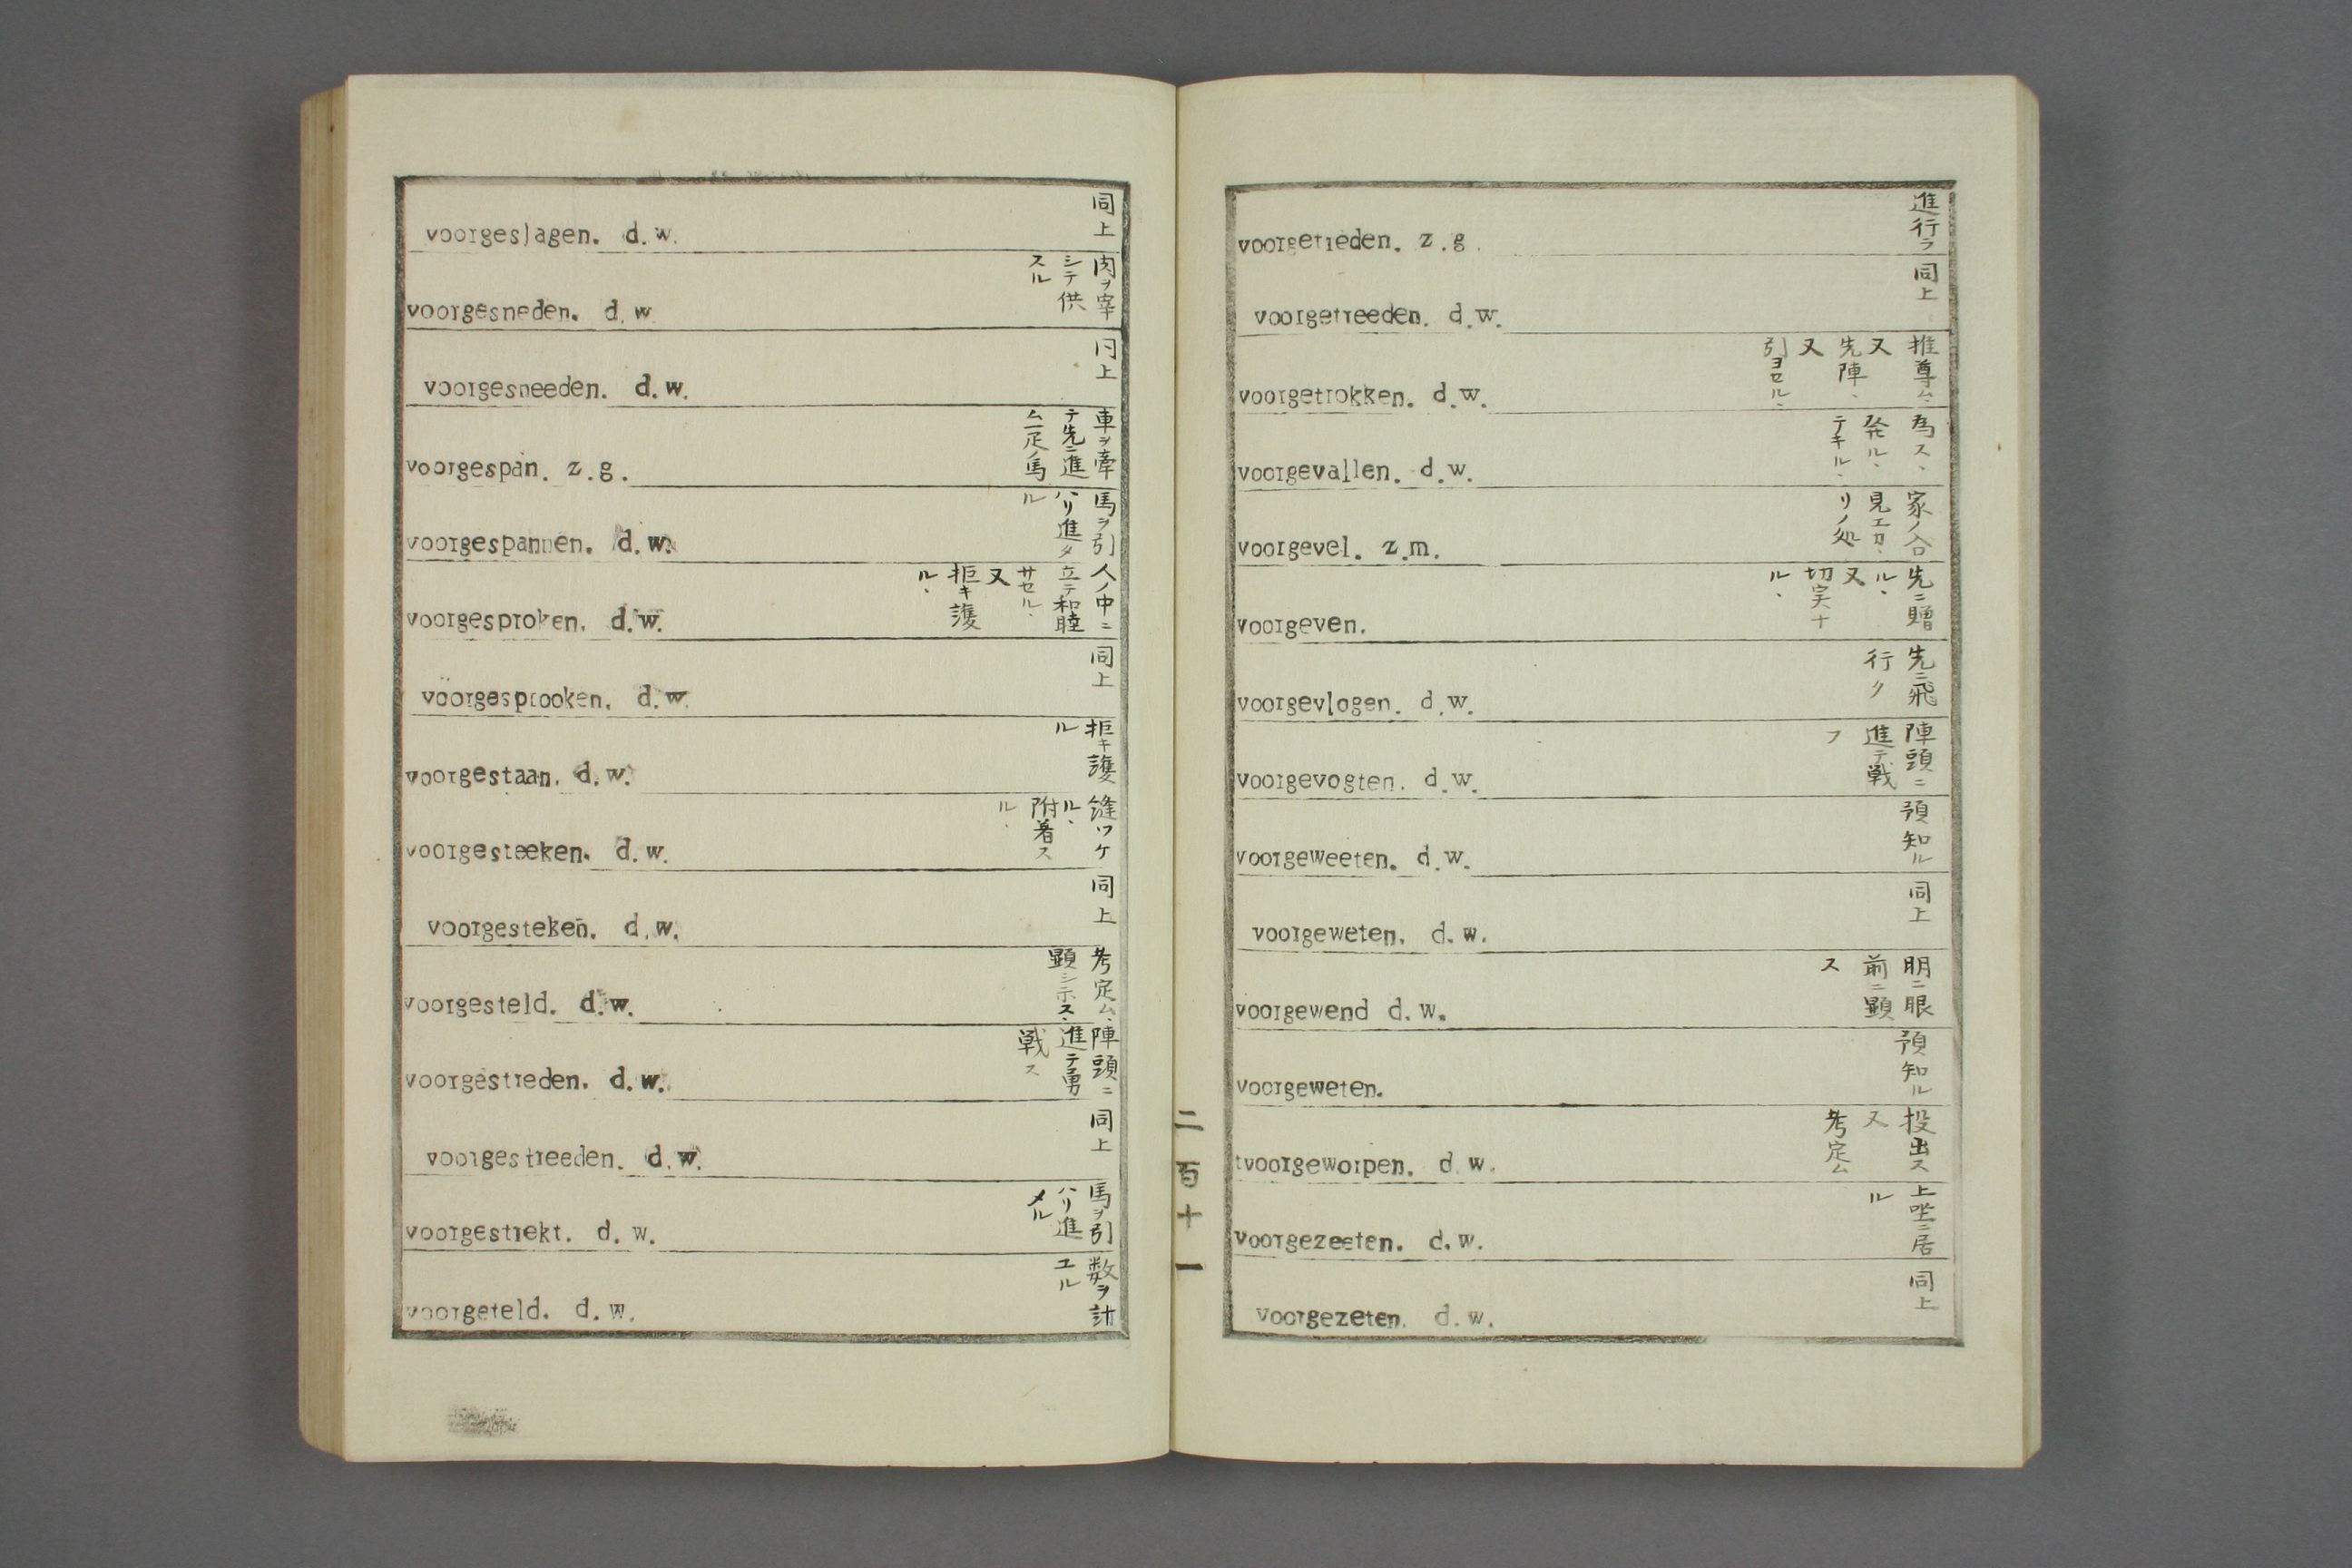 voorgeslagen. d. w.
同上
voorgesneden. d. w
肉ヲ宰
シテ供
スル
voorgesneeden. d. w.
同上
voorgespan. z. g.
車ヲ牽
テ先ニ進
ム一疋ノ馬
voorgespannen. d. w.
馬ヲ引
ハリ進タ
ル
voorgesproken. d. w.
人ノ中ニ
立テ和睦
サセル、
又
拒キ護
ル、
voorgesprooken. d. w.
同上
voorgestaan. d. w.
拒キ護
ル
voorgesteeken. d. w.
縫ツケ
ル、
附着ス
ル、
voorgesteken. d. w.
同上
voorgesteld. d. w.
考定ム、
顕シ示ス、
voorgestreden. d. w.
陣頭ニ
進テ勇
戦ス
voorgestreeden. d. w.
同上
voorgestrekt. d. w.
馬ヲ引
ハリ進
メル
voorgeteld. d. w.
数ヲ計
エル
二百十一
voorgetreden. z. g.
進行ヲ
voorgetreeden. d. w.
同上
voorgetrokken. d. w.
推尊ム、
又
先陣、
又
引ヨセル、
voorgevallen. d. w.
為ス、
発ル、
テキル、
voorgevel. z. m.
家ノ合
見エカヽ
リノ処
voorgeven.
先ニ贈
ル、
又
切実ナ
ル、
voorgevlogen. d. w.
先ニ飛
行ク
voorgevogten. d. w.
陣頭ニ
進テ戦
フ
voorgeweeten. d. w.
預知ル
voorgeweten. d. w.
同上
voorgewend d. w.
明ニ眼
前ニ顕
ス
voorgeweten.
預知ル
tvoorgeworpen. d. w.
投出ス
又
考定ム
voorgezeeten. d. w.
上坐ニ居
ル
voorgezeten. d. w.
同上